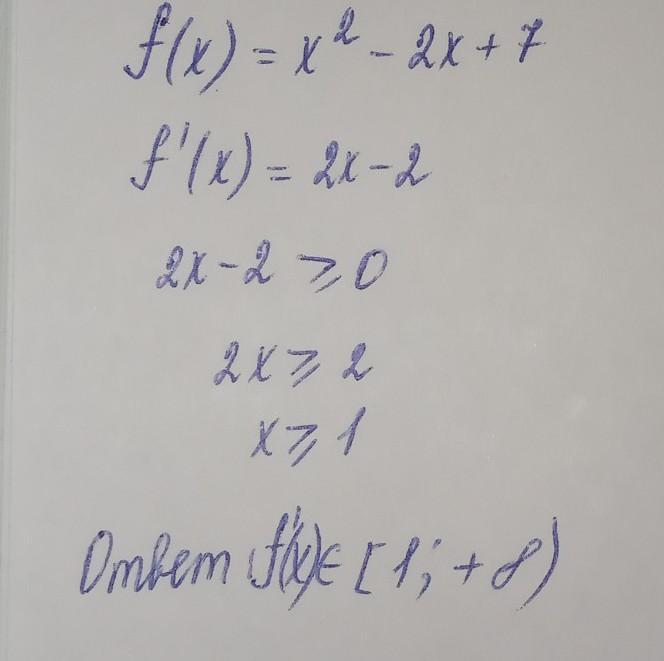 f(x) = x² - 2x + 7
f'(x) = 2x - 2
2x - 2 ⩾ 0
2x ⩾ 2
x ⩾ 1
Ответ f'(x) ∈ [1; + ∞)